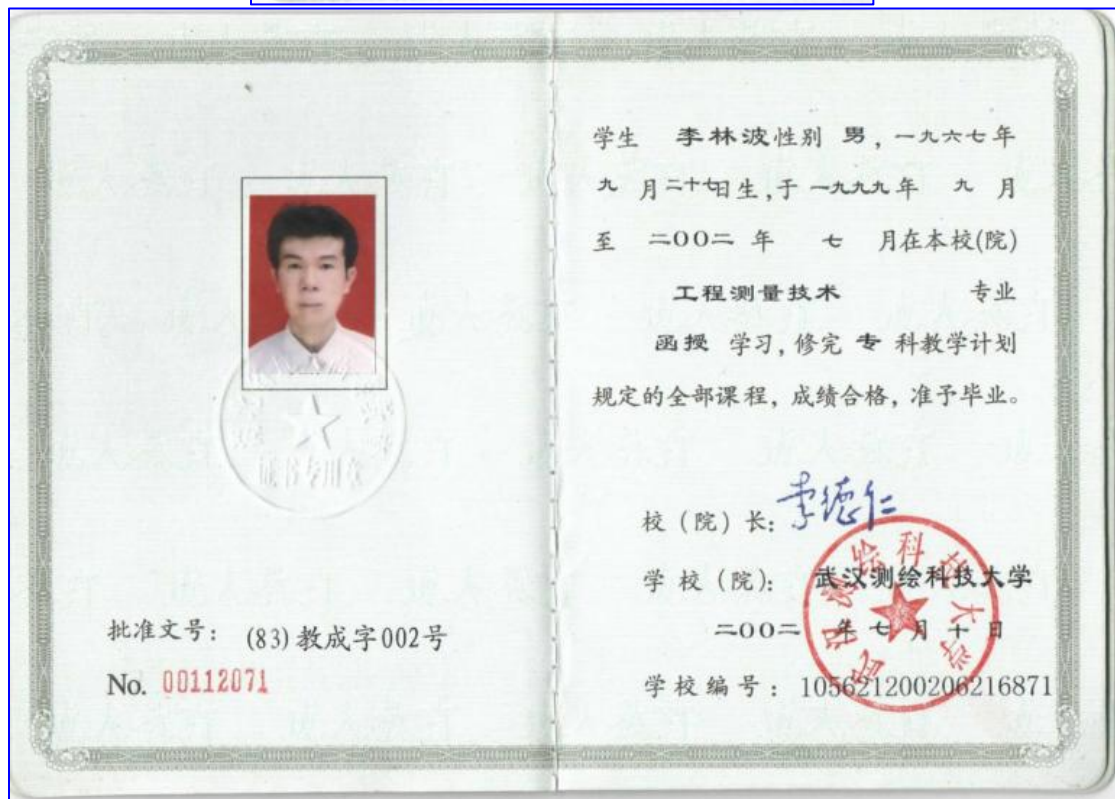 证书专用章
批准文号: (83)教成字002号
No. 00112071
学生 李林波性别 男,一九六七年
九 月二十七日生,于一九九九年 九 月
至 二〇〇二 年 七 月在本校(院)
工程测量技术 专业
函授 学习,修完 专 科教学计划
规定的全部课程,成绩合格,准予毕业。
校(院)长: 李德仁
学校(院): 武汉测绘科技大学
武汉测绘科技大学
二〇〇二 年 七 月 十 日
学校编号: 105621200206216871